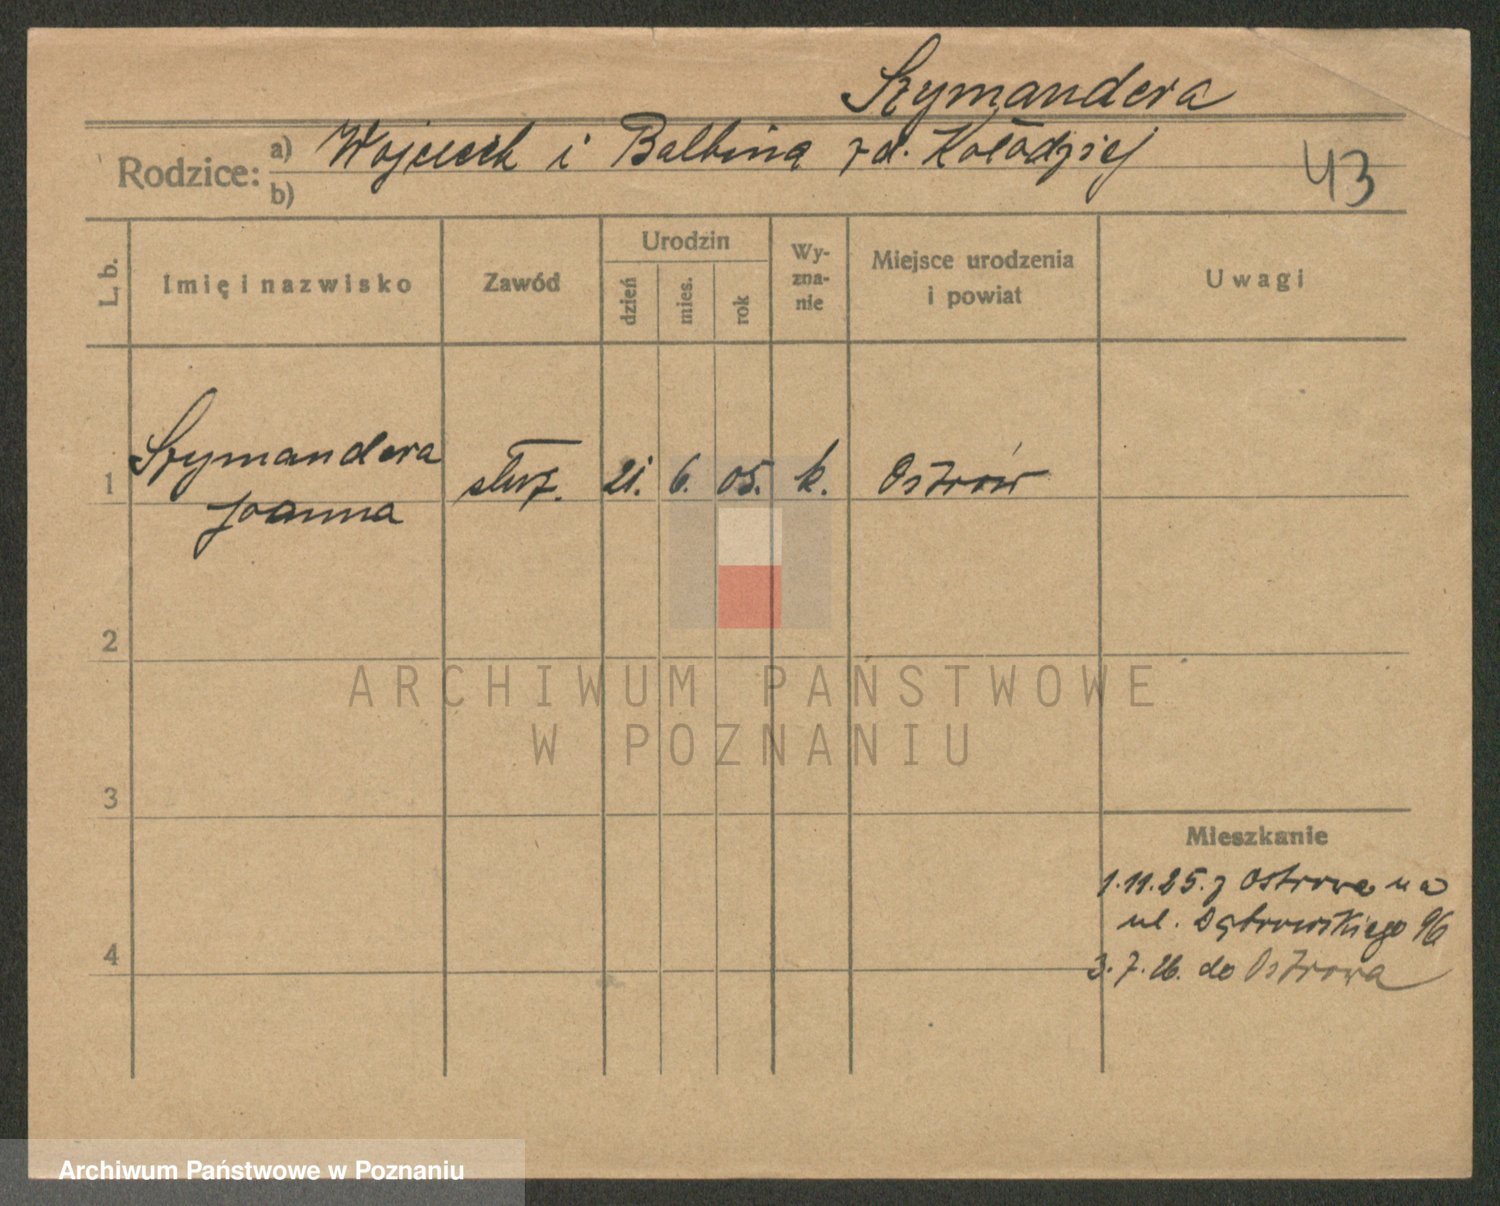 Szymandera
Rodzice: a) Wojciech i Balbina zd. Kołodziej
b)
43
L. b.
Imię i nazwisko
Zawód
Urodzin
dzień
mies.
rok
Wy-
zna-
nie
Miejsce urodzenia
i powiat
Uwagi
1 Szymandera służ. 21. 6. 05. k. Ostrów
Joanna
2
3
4
Mieszkanie
1.11.25. z Ostrowa na
ul. Dąbrowskiego 96
3.7.26. do Ostrowa
ARCHIWUM PAŃSTWOWE
W POZNANIU
Archiwum Państwowe w Poznaniu